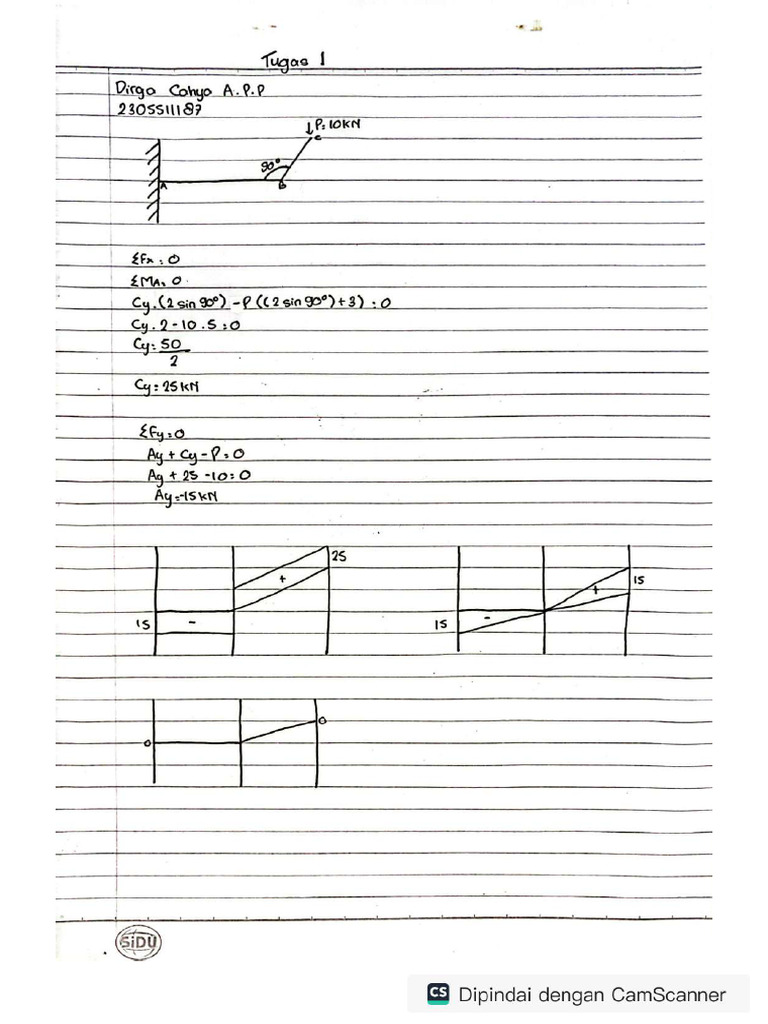 Tugas 1
Dirga Cahya A.P.P
2305511187
↓P=10KN
C
90°
A
B
ΣFx=0
ΣMA=0
Cy.(2 sin 90°) -P((2 sin 90°)+3)=0
Cy.2-10.5=0
Cy=50
2
Cy=25KN
ΣFy=0
Ay + Cy - P=0
Ay + 25 -10=0
Ay=-15KN
25
+
15 -
15
+
15 -
0
0
SiDU
CS Dipindai dengan CamScanner